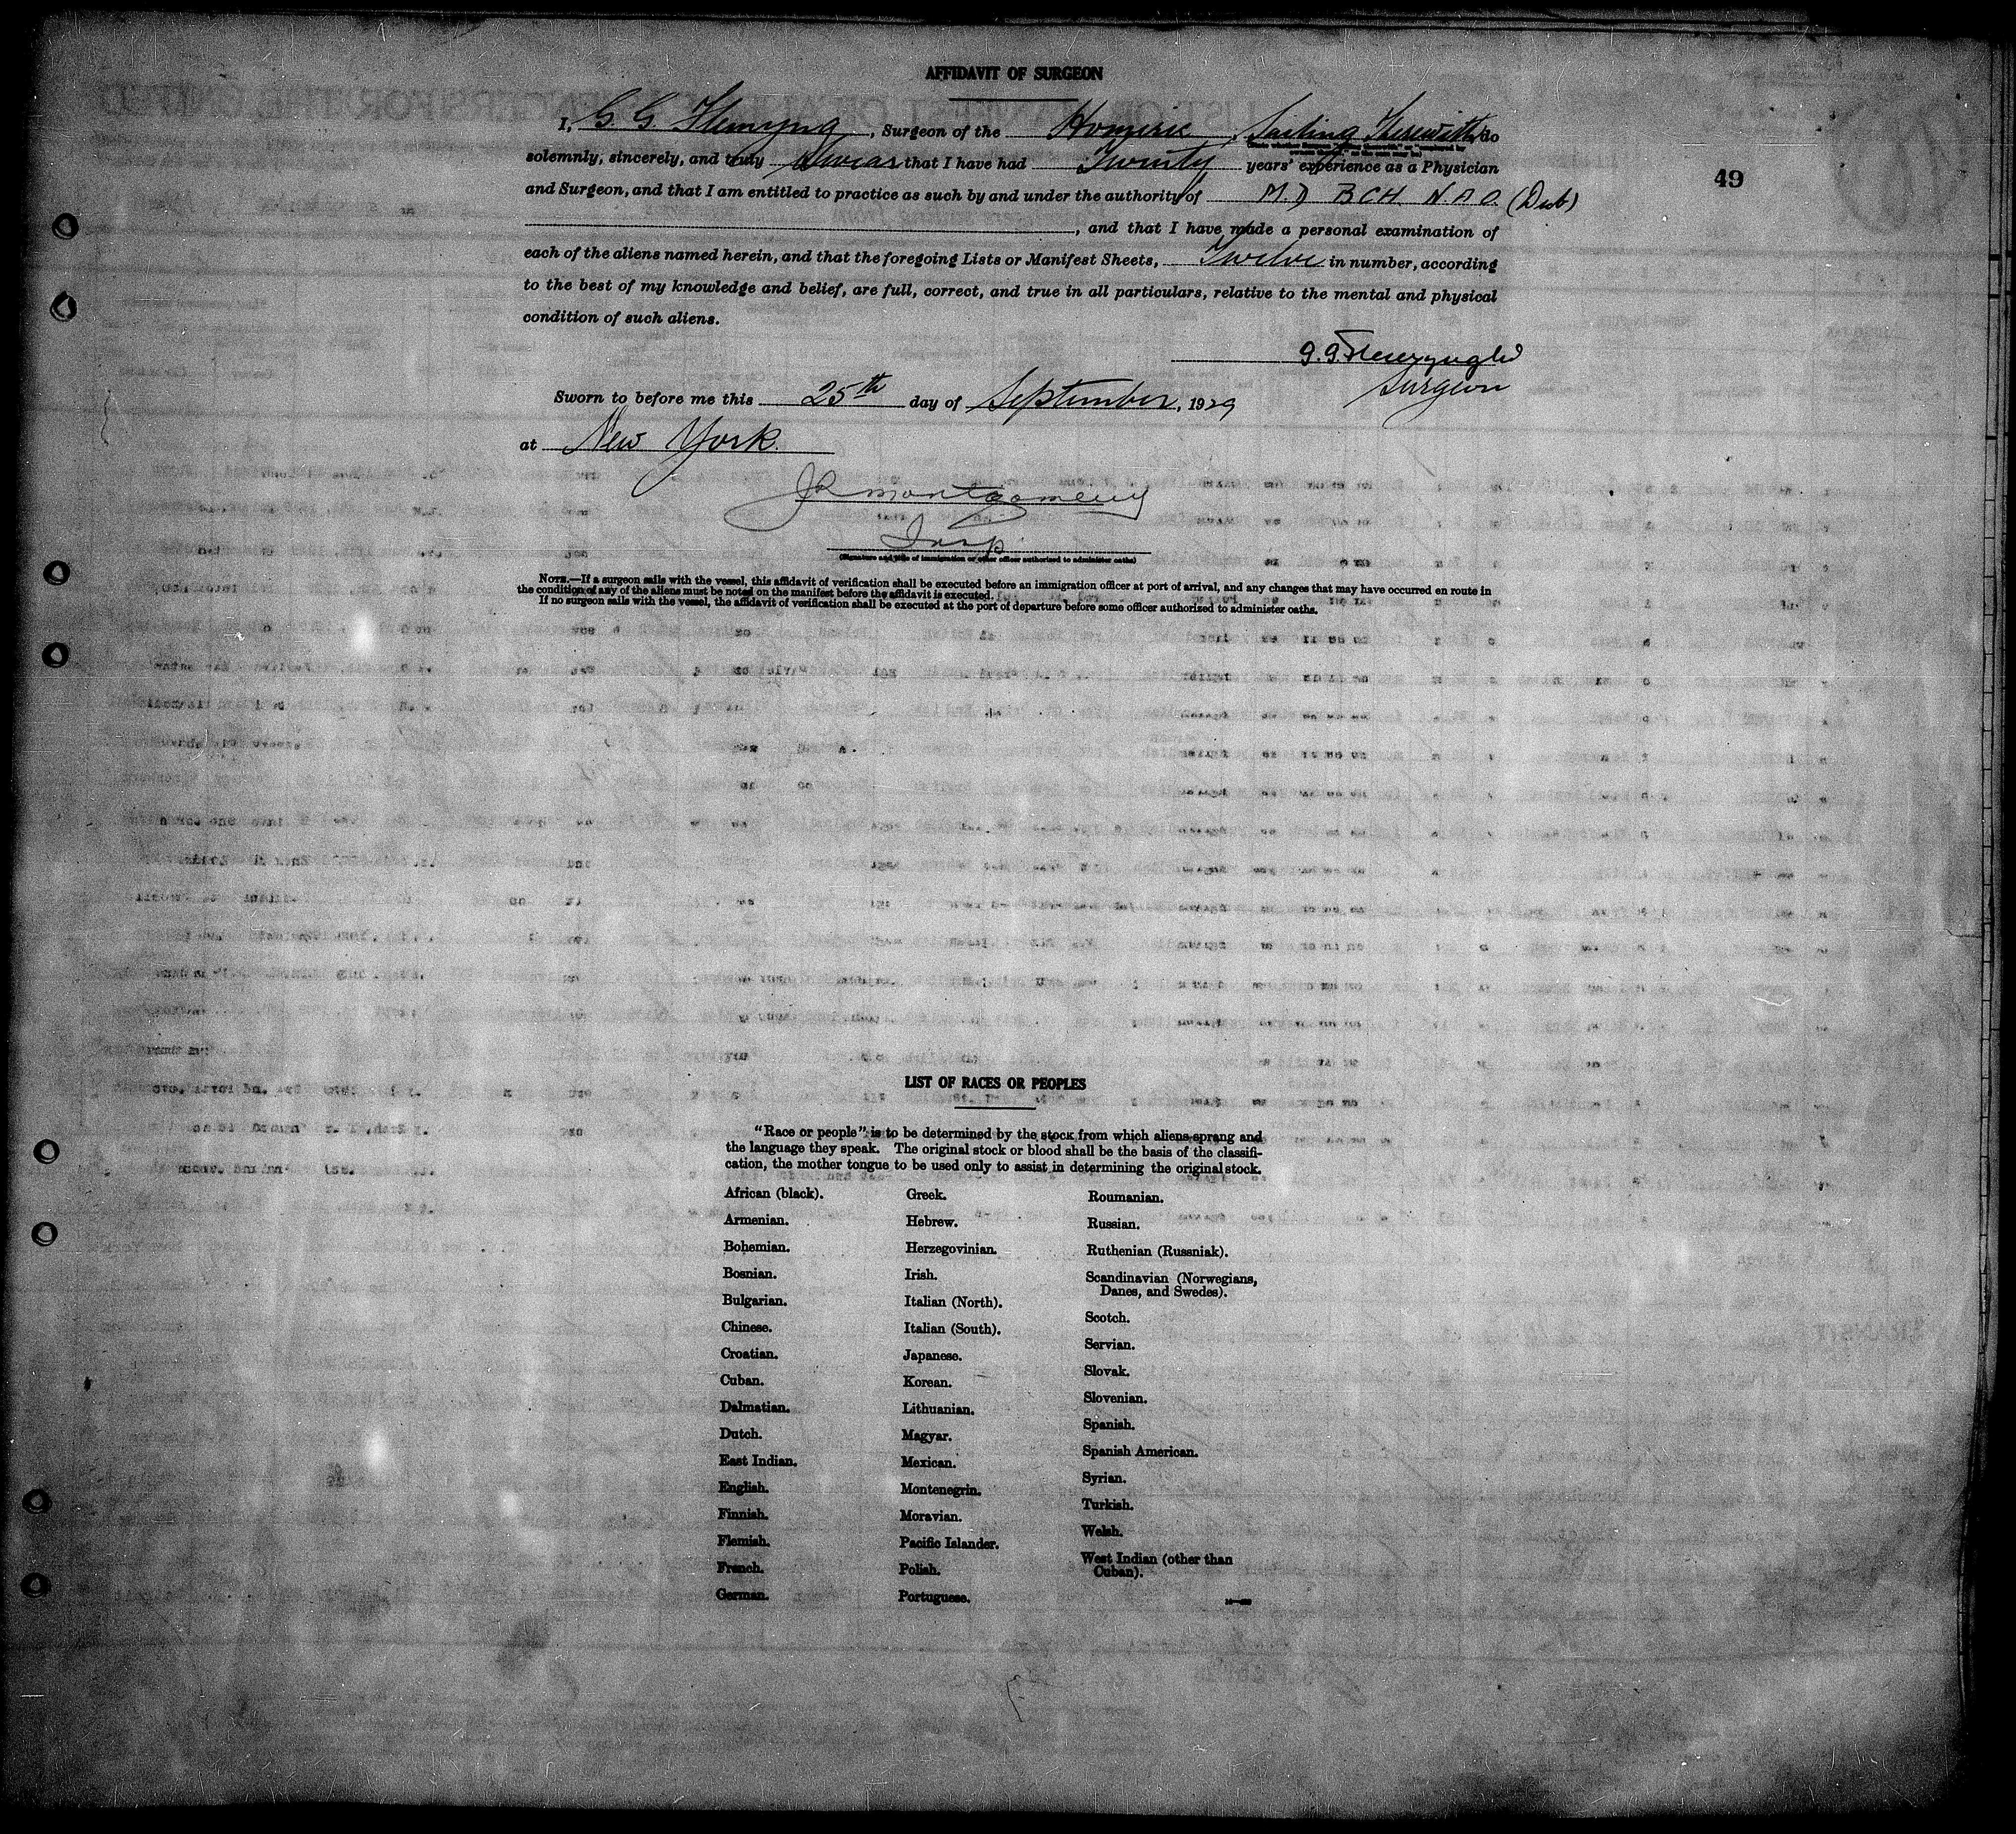 AFFIDAVIT OF SURGEON
I, G. G. Flemyng, Surgeon of the Homeric, Sailing Therewith, do
solemnly, sincerely, and truly Swear that I have had Twenty years' experience as a Physician
and Surgeon, and that I am entitled to practice as such by and under the authority of M.D BCH (Dub)
, and that I have made a personal examination of
each of the aliens named herein, and that the foregoing Lists or Manifest Sheets, Twelve in number, according
to the best of my knowledge and belief, are full, correct, and true in all particulars, relative to the mental and physical
condition of such aliens.
49
Surgeon
Sworn to before me this 25th day of September, 1929
at New York.
JR Montgomery
Insp
(Signature and title of immigration or other officer authorized to administer oaths)
NOTE.—If a surgeon sails with the vessel, this affidavit of verification shall be executed before an immigration officer at port of arrival, and any changes that may have occurred en route in
the condition of any of the aliens must be noted on the manifest before the affidavit is executed.
If no surgeon sails with the vessel, the affidavit of verification shall be executed at the port of departure before some officer authorized to administer oaths.
LIST OF RACES OR PEOPLES
"Race or people" is to be determined by the stock from which aliens sprang and
the language they speak. The original stock or blood shall be the basis of the classifi-
cation, the mother tongue to be used only to assist in determining the original stock.
African (black).
Armenian.
Bohemian.
Bosnian.
Bulgarian.
Chinese.
Croatian.
Cuban.
Dalmatian.
Dutch.
East Indian.
English.
Finnish.
Flemish.
French.
German.
Greek.
Hebrew.
Herzegovinian.
Irish.
Italian (North).
Italian (South).
Japanese.
Korean.
Lithuanian.
Magyar.
Mexican.
Montenegrin.
Moravian.
Pacific Islander.
Polish.
Portuguese.
Roumanian.
Russian.
Ruthenian (Russniak).
Scandinavian (Norwegians,
Danes, and Swedes).
Scotch.
Servian.
Slovak.
Slovenian.
Spanish.
Spanish American.
Syrian.
Turkish.
Welsh.
West Indian (other than
Cuban).